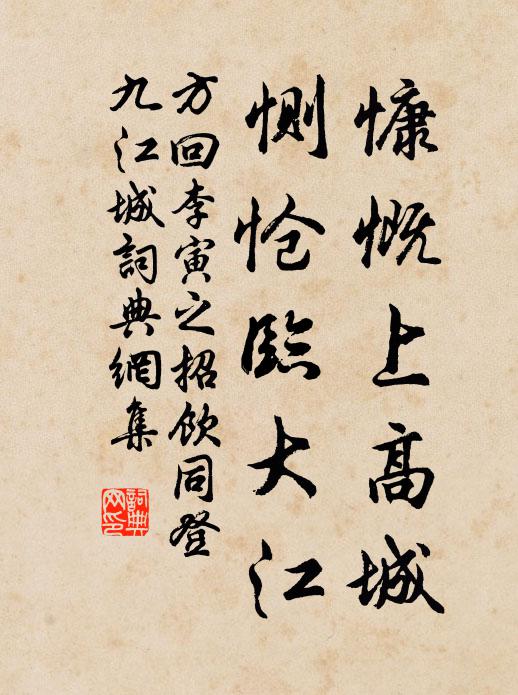 慷慨上高城
惻怆臨大江
方回李寅之招飲同登
九江城詞典網集
詞典
网印